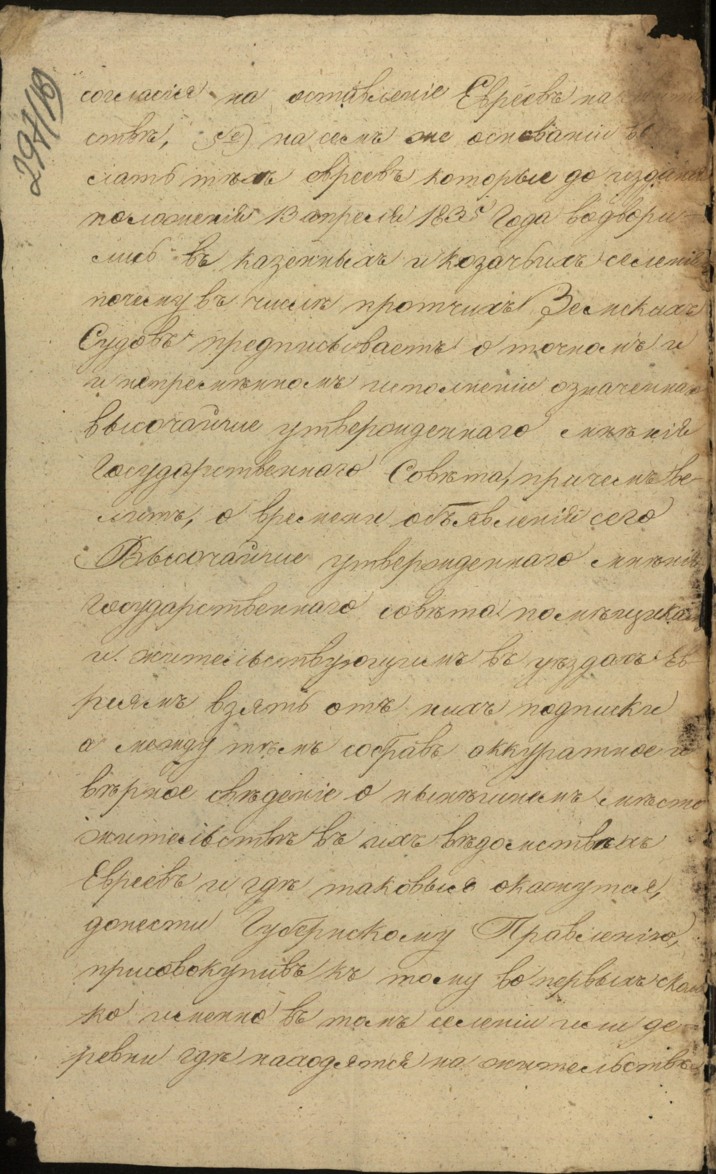 согласія на оставленіе Евреевъ на
ствѣ, 5е) на семъ же основаніи
слать тѣхъ евреевъ которые до изданія
положенія 13 апреля 1835 года водвори-
лись въ казенныхъ и козачьихъ селені
почему въ числѣ протчихъ Земскихъ
Судовъ предписываетъ о точномъ и
и непремѣнномъ исполненіи означеннаго
высочайше утвержденнаго мнѣнія
Государственнаго Совѣта, причемъ ве-
литъ, о времени объявленія сего
Высочайше утвержденнаго мнѣнія
государственнаго совѣта помѣщика
и жительствующимъ въ уѣздахъ Ев
реямъ взять отъ нихъ подписки
а между тѣмъ собравъ аккуратное и
вѣрное свѣденіе о нынѣшнемъ мѣсто
жительствѣ въ ихъ вѣдомствахъ
Евреевъ и гдѣ таковыя окажутся,
донести Губернскому Правленію,
присовокупивъ къ тому во первыхъ сколь
ко именно въ томъ селеніи или де-
ревни гдѣ находятся на жительствѣ